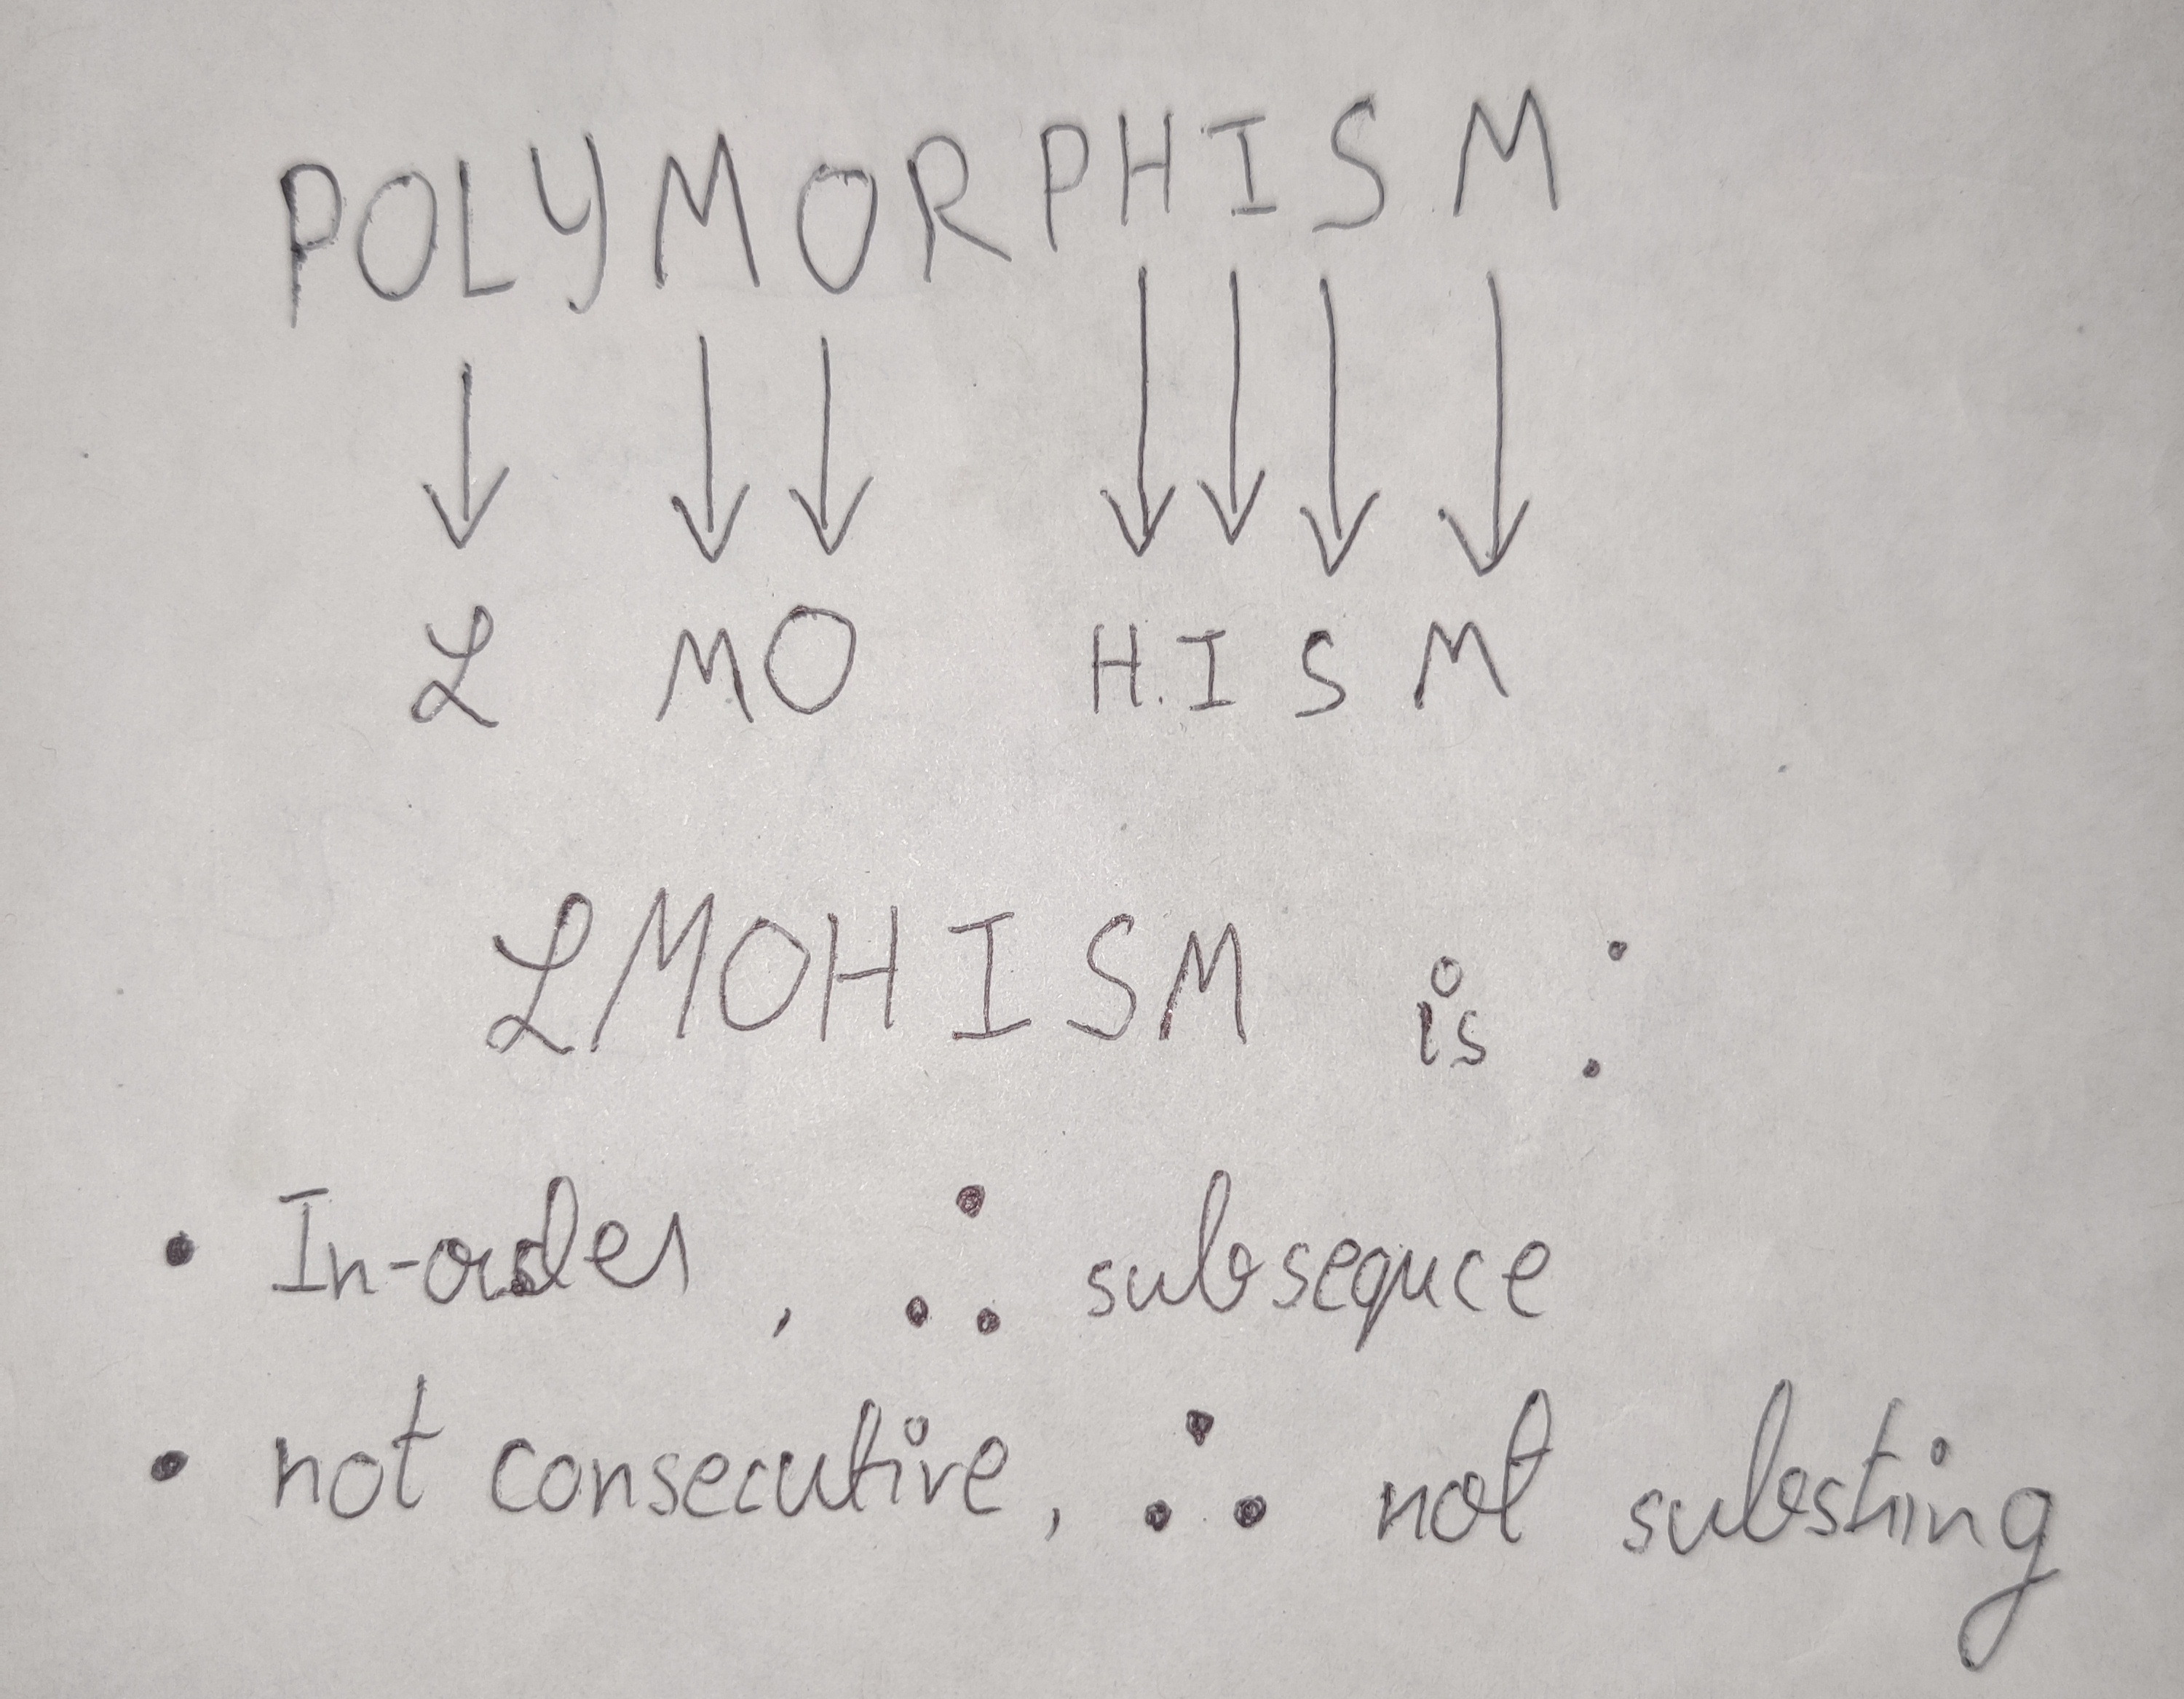 POLYMORPHISM
L MO HISM
LMOHISM is :
• In-order, ∴ subsequce
• not consecutive, ∴ not substring